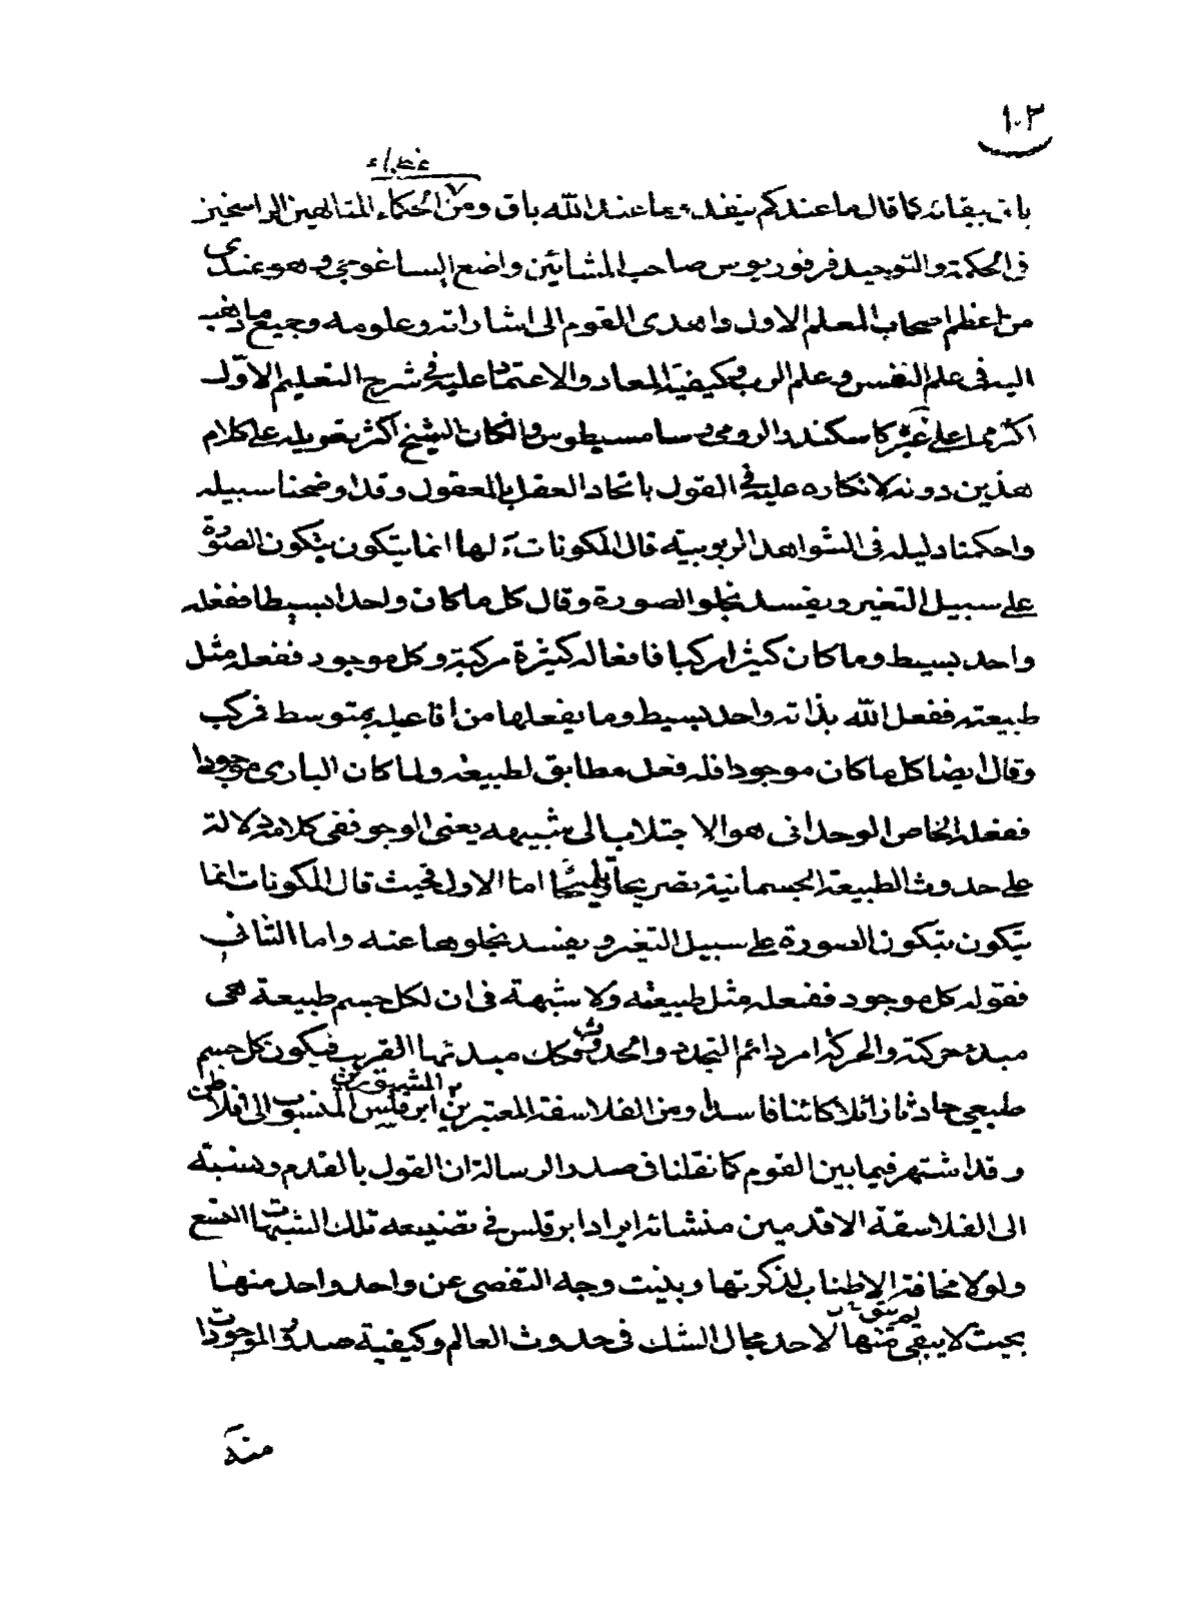 ١٠٣
عظماء
باق ببقائه كما قال ما عندكم ينفد وما عند الله باق ومن الحكماء المتالهين الراسخين
فى الحكمة والتوحيد فرفوريوس صاحب المشائين واضع ايساغوجى وهو عندى
من اعظم اصحاب المعلم الاول واهدى القوم الى اشاراته وعلومه وجميع ما ذهب
اليه فى علم النفس وعلم الرب وكيفية المعاد والاعتماد عليه فى شرح التعليم الاول
اكثر مما على غيره كاسكندر الرومى و سامسيطوس وان كان الشيخ اكثر تعويله على كلام
هذين دونه لانكاره عليه فى القول باتحاد العقل بالمعقول وقد اوضحنا سبيله
واحكمنا دليله فى الشواهد الربوبية قال المكونات كلها انما يتكون بتكون الصورة
على سبيل التغير ويفسد بخلو الصورة وقال كل ما كان واحدا بسيطا ففعله
واحد بسيط وما كان كثيرا مركبا فافعاله كثيرة مركبة وكل موجود ففعله مثل
طبيعته ففعل الله بذاته واحد بسيط وما يفعلها من افاعيله بمتوسط فمركب
وقال ايضا كل ما كان موجودا فله فعل مطابق لطبيعته ولما كان البارى موجودا
ففعله الخاص الوحدانى هو الاجتلاب الى شبيهه يعنى الوجود ففى كلامه دلالة
على حدوث الطبيعة الجسمانية تصريحا وتلميحا اما الاول فحيث قال المكونات انما
يتكون بتكون الصورة على سبيل التغير ويفسد بخلوها عنه واما الثانى
فقوله كل موجود ففعله مثل طبيعته ولا شبهة فى ان لكل جسم طبيعة هى
مبدء حركته والحركة امر دائم التجدد والحدوث فكك مبدئها القريب فيكون كل جسم
طبيعى حادثا زائلا كائنا فاسدا ومن الفلاسفة المعتبرين ابرقلس المنسوب الى افلاطن
المشهورين
وقد اشتهر فيما بين القوم كما نقلنا فى صدر الرسالة ان القول بالقدم ونسبته
الى الفلاسفة الاقدمين منشائه ايراد ابرقلس فى تصنيعه تلك الشبهات التسع
ولولا مخافة الاطناب لذكرتها وبينت وجه التفصى عن واحد واحد منها
بحيث لا يبقى منها لاحد مجال الشك فى حدوث العالم وكيفية صدور الموجودات
منه